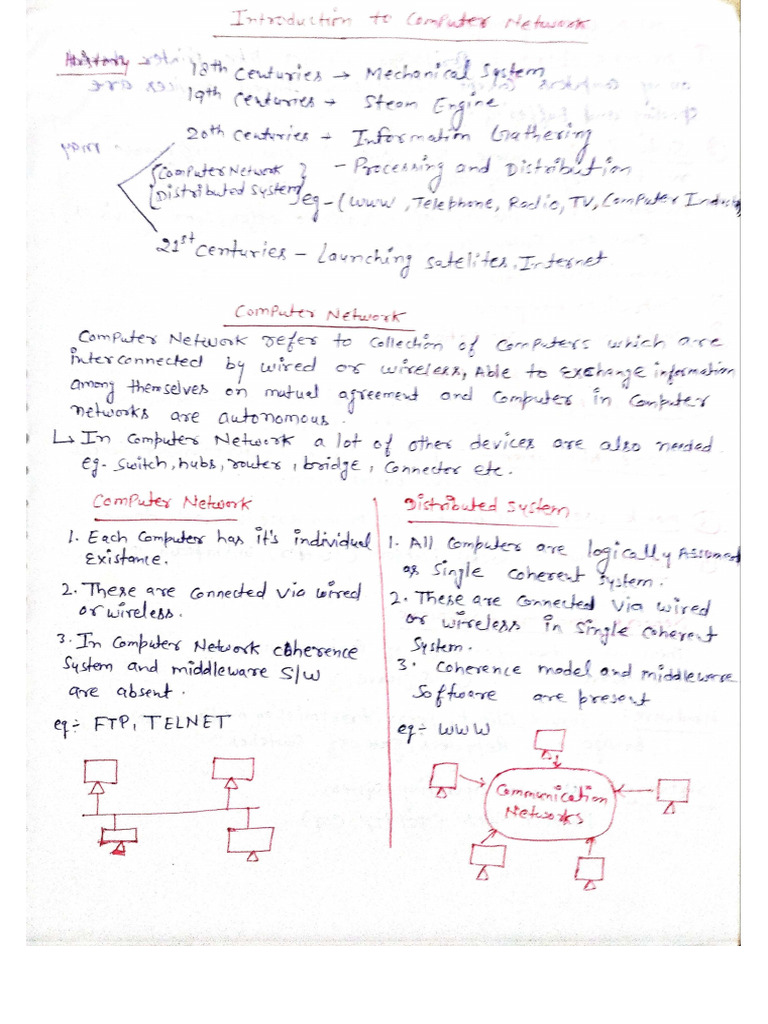 Introduction to Computer Network
History
18th Centuries → Mechanical System
19th Centuries → Steam Engine
20th Centuries → Information Gathering
- Processing and Distribution
{Computer Network
Distributed System}
eg - (WWW, Telephone, Radio, TV, Computer Indust
21st Centuries - Launching Satelites, Internet
Computer Network
Computer Network refer to collection of computers which are
interconnected by wired or wireless, Able to Exchange information
among themselves on mutual agreement and Computer in Computer
networks are autonomous.
↳ In Computer Network a lot of other devices are also needed
eg- Switch, hubs, router, bridge, Connector etc.
Computer Network
1. Each Computer has it's individual
Existance.
2. These are Connected Via wired
or wireless.
3. In Computer Network coherence
System and middleware S/W
are absent.
eg:- FTP, TELNET
Distributed System
1. All Computer are logically Assumed
as Single Coherent System.
2. These are Connected Via wired
or wireless in Single Coherent
System.
3. Coherence model and middleware
Software are present
eg:- WWW
Communication
Networks